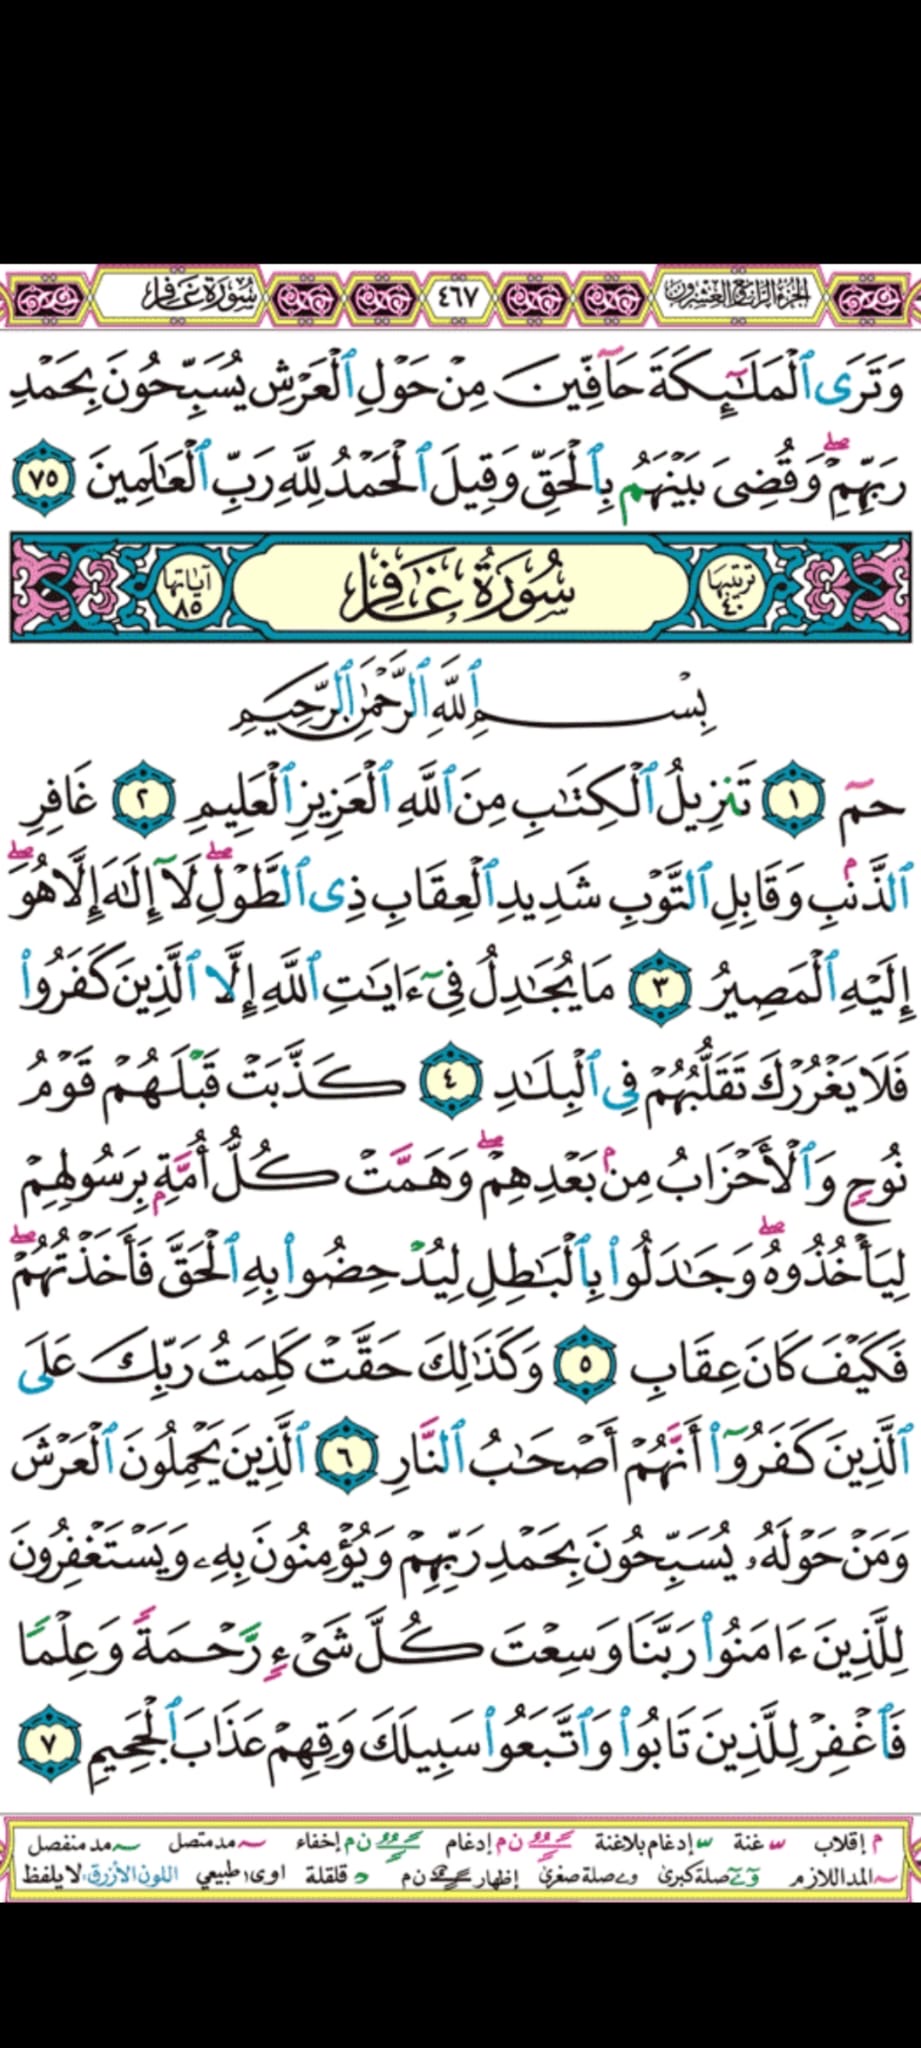 الجزء الرابع والعشرون ٤٦٧ سُورَةُ غَافِر
وَتَرَى ٱلْمَلَـٰٓئِكَةَ حَآفِّينَ مِنْ حَوْلِ ٱلْعَرْشِ يُسَبِّحُونَ بِحَمْدِ
رَبِّهِمْ ۖ وَقُضِىَ بَيْنَهُم بِٱلْحَقِّ وَقِيلَ ٱلْحَمْدُ لِلَّهِ رَبِّ ٱلْعَـٰلَمِينَ ٧٥
ترتيبها ٤٠ سُورَةُ غَافِر آياتها ٨٥
بِسْمِ ٱللَّهِ ٱلرَّحْمَـٰنِ ٱلرَّحِيمِ
حمٓ ١ تَنزِيلُ ٱلْكِتَـٰبِ مِنَ ٱللَّهِ ٱلْعَزِيزِ ٱلْعَلِيمِ ٢ غَافِرِ
ٱلذَّنۢبِ وَقَابِلِ ٱلتَّوْبِ شَدِيدِ ٱلْعِقَابِ ذِى ٱلطَّوْلِ ۖ لَآ إِلَـٰهَ إِلَّا هُوَ ۖ
إِلَيْهِ ٱلْمَصِيرُ ٣ مَا يُجَـٰدِلُ فِىٓ ءَايَـٰتِ ٱللَّهِ إِلَّا ٱلَّذِينَ كَفَرُوا۟
فَلَا يَغْرُرْكَ تَقَلُّبُهُمْ فِى ٱلْبِلَـٰدِ ٤ كَذَّبَتْ قَبْلَهُمْ قَوْمُ
نُوحٍ وَٱلْأَحْزَابُ مِنۢ بَعْدِهِمْ ۖ وَهَمَّتْ كُلُّ أُمَّةٍۭ بِرَسُولِهِمْ
لِيَأْخُذُوهُ ۖ وَجَـٰدَلُوا۟ بِٱلْبَـٰطِلِ لِيُدْحِضُوا۟ بِهِ ٱلْحَقَّ فَأَخَذْتُهُمْ ۖ
فَكَيْفَ كَانَ عِقَابِ ٥ وَكَذَٰلِكَ حَقَّتْ كَلِمَتُ رَبِّكَ عَلَى
ٱلَّذِينَ كَفَرُوٓا۟ أَنَّهُمْ أَصْحَـٰبُ ٱلنَّارِ ٦ ٱلَّذِينَ يَحْمِلُونَ ٱلْعَرْشَ
وَمَنْ حَوْلَهُۥ يُسَبِّحُونَ بِحَمْدِ رَبِّهِمْ وَيُؤْمِنُونَ بِهِۦ وَيَسْتَغْفِرُونَ
لِلَّذِينَ ءَامَنُوا۟ رَبَّنَا وَسِعْتَ كُلَّ شَىْءٍ رَّحْمَةً وَعِلْمًا
فَٱغْفِرْ لِلَّذِينَ تَابُوا۟ وَٱتَّبَعُوا۟ سَبِيلَكَ وَقِهِمْ عَذَابَ ٱلْجَحِيمِ ٧
م إقلاب غنة إدغام بلاغنة ن م إدغام ن م إخفاء مد متصل مد منفصل
المد اللازم صلة كبرى صلة صغرى إظهار ن م قلقلة اوى طبيعي اللون الأزرق: لا يلفظ